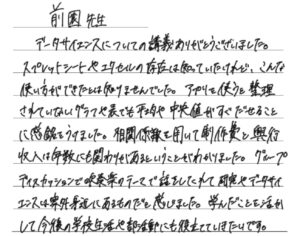 前園先生
データサイエンスについての講義ありがとうございました。
スプレットシートやエクセルの存在は知っていたけれど、こんな
使い方ができたとは知りませんでした。アプリを使うと整理
されていないグラフや表でも平均や中央値がすぐだせること
に感銘をうけました。相関係数を用いて制作費と興行
収入は係数にも関わりがあるということがわかりました。グループ
ディスカッションで吹奏楽のテーマで話をしたくれて 同僚やデータサイ
エンスは案外身近にあるものだなと感じました。学んだことを活か
して今後の学校生活や部活動にも役立てていきたいです。